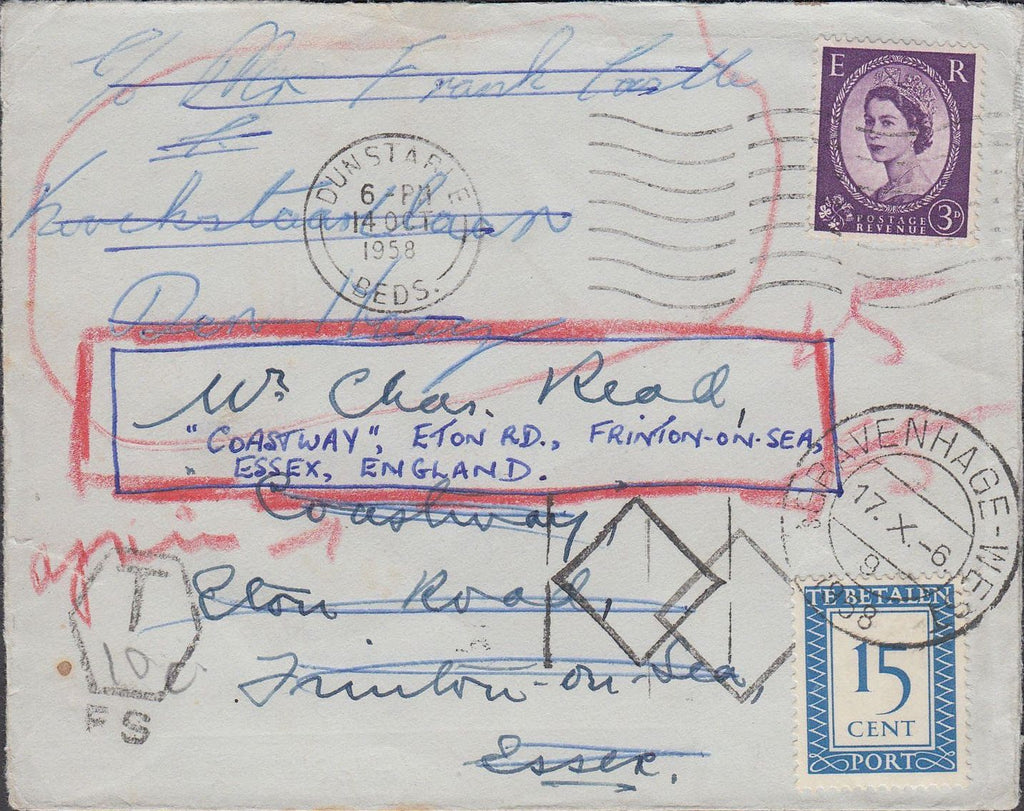 c/o Mr Frank Castle
E R
DUNSTABLE
6 - PM
14 OCT
1958
BEDS.
POSTAGE
REVENUE
3D
Den Haag
15
Mr Chas. Read,
"COASTWAY", ETON RD., FRINTON-ON-SEA,
ESSEX, ENGLAND.
'S GRAVENHAGE-WEST
17. X. -6
1958
"Coastway,
again
T
10 c
FS
Eton Road,
Frinton-on-Sea,
Essex.
TE BETALEN
15
CENT
PORT